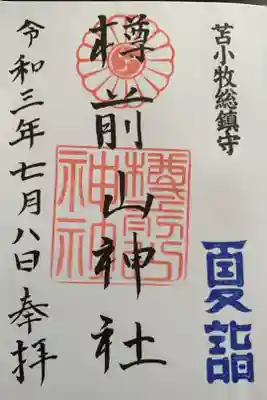 苫小牧総鎮守
夏詣
樽前山神社
樽前山神社
令和三年七月八日奉拝